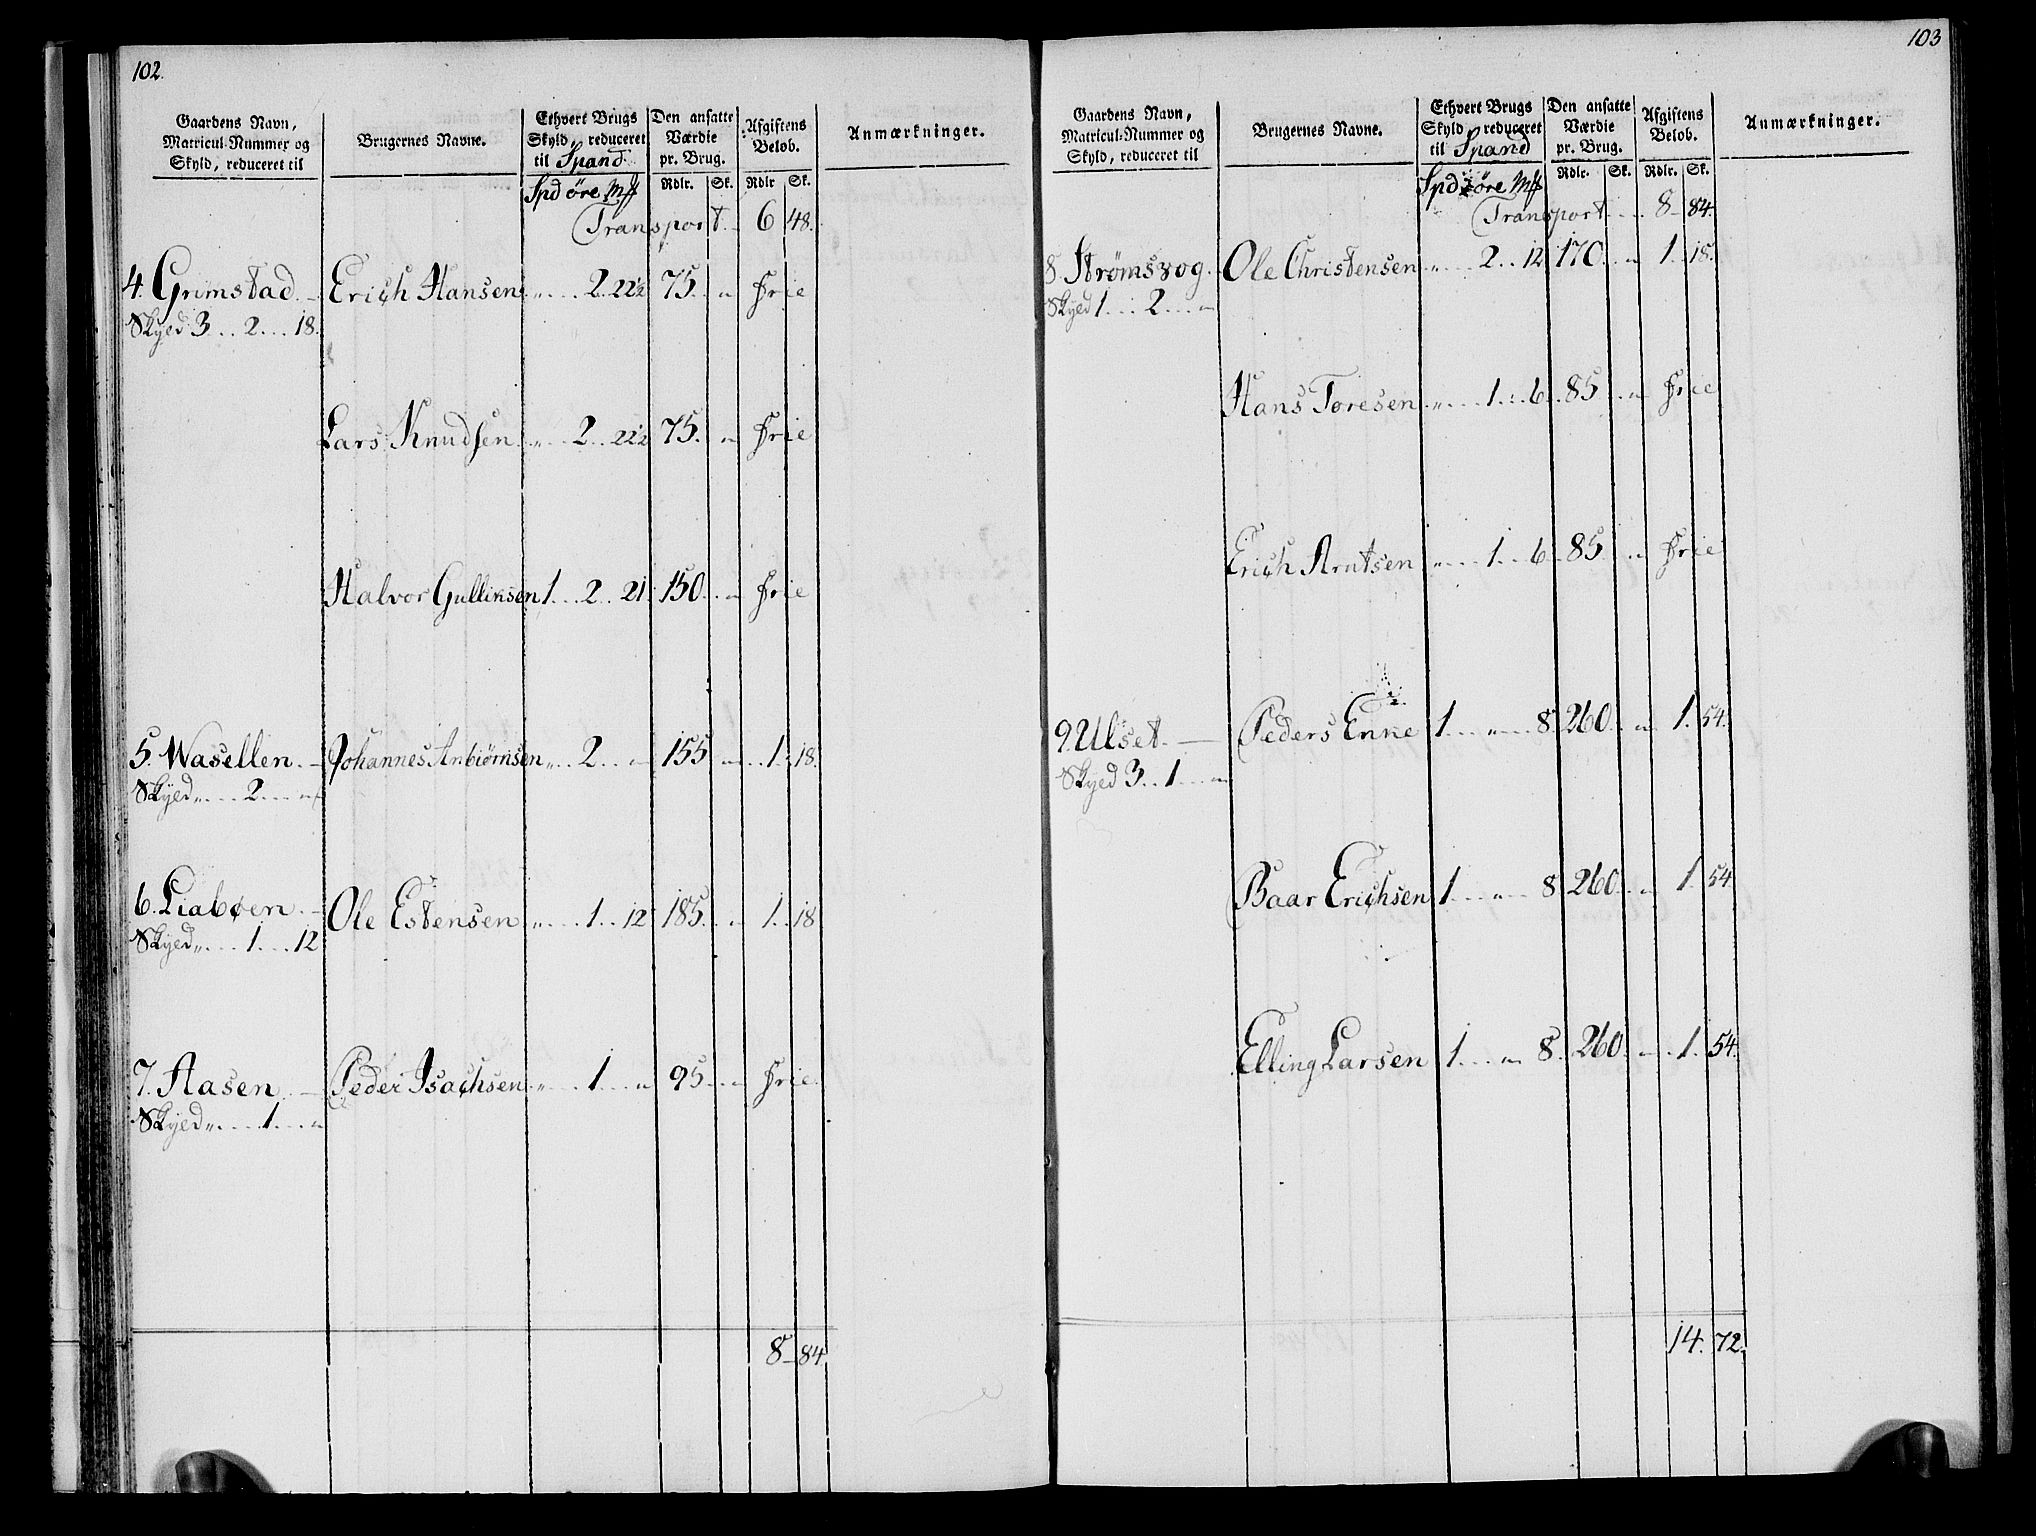 102.
Gaardens Navn, Matricul-Nummer og Skyld, reduceret til
Brugernes Navne.
Ethvert Brugs Skyld, reduceret til Spand.
Den ansatte Værdie pr. Brug.
Afgiftens Beløb.
Anmærkninger.
Spd öre Mk Rdlr. Sk. Rdlr Sk.
Transport. 6 48.
4. Grimstad. Erich Hansen „ 2 22½ 75. „ Frie
Skyed 3 .. 2 ... 18.
Lars Knudsen „ 2 .. 22½ 75. „ Frie
Halvor Gulliksen 1 ... 2 .. 21. 150. „ Frie
5. Wasellen. Johannes Anbiørnsen „ 2 „ 155 „ 1. 18.
Skyed „ 2 „
6. Liabøen. Ole Estensen „ 1 .. 12 185. „ 1. 18
Skyed „ 1 ... 12
7. Aasen Peder Isachsen „ 1 „ 95 „ Frie
Skyed „ 1 „
8 84
103
Gaardens Navn, Matricul-Nummer og Skyld, reduceret til
Brugernes Navne.
Ethvert Brugs Skyld, reduceret til Spand
Den ansatte Værdie pr. Brug.
Afgiftens Beløb.
Anmærkninger.
Spd öre Mk Rdlr. Sk. Rdlr. Sk.
Transport 8 84.
8. Strømsvog. Ole Christensen „ 2 .. 12 170. „ 1. 18.
Skyed 1 ... 2 ... „
Hans Toresen „ 1 .. 6 85 „ Frie
Erich Arntsen „ 1 .. 6 85 „ Frie
9. Ulset. Peders Enke 1 „ 8 260. „ 1. 54.
Skyed 3 .. 1 „
Baar Erichsen 1 „ 8 260 „ 1. 54
Elling Larsen 1 „ 8. 260. „ 1. 54.
14. 72.